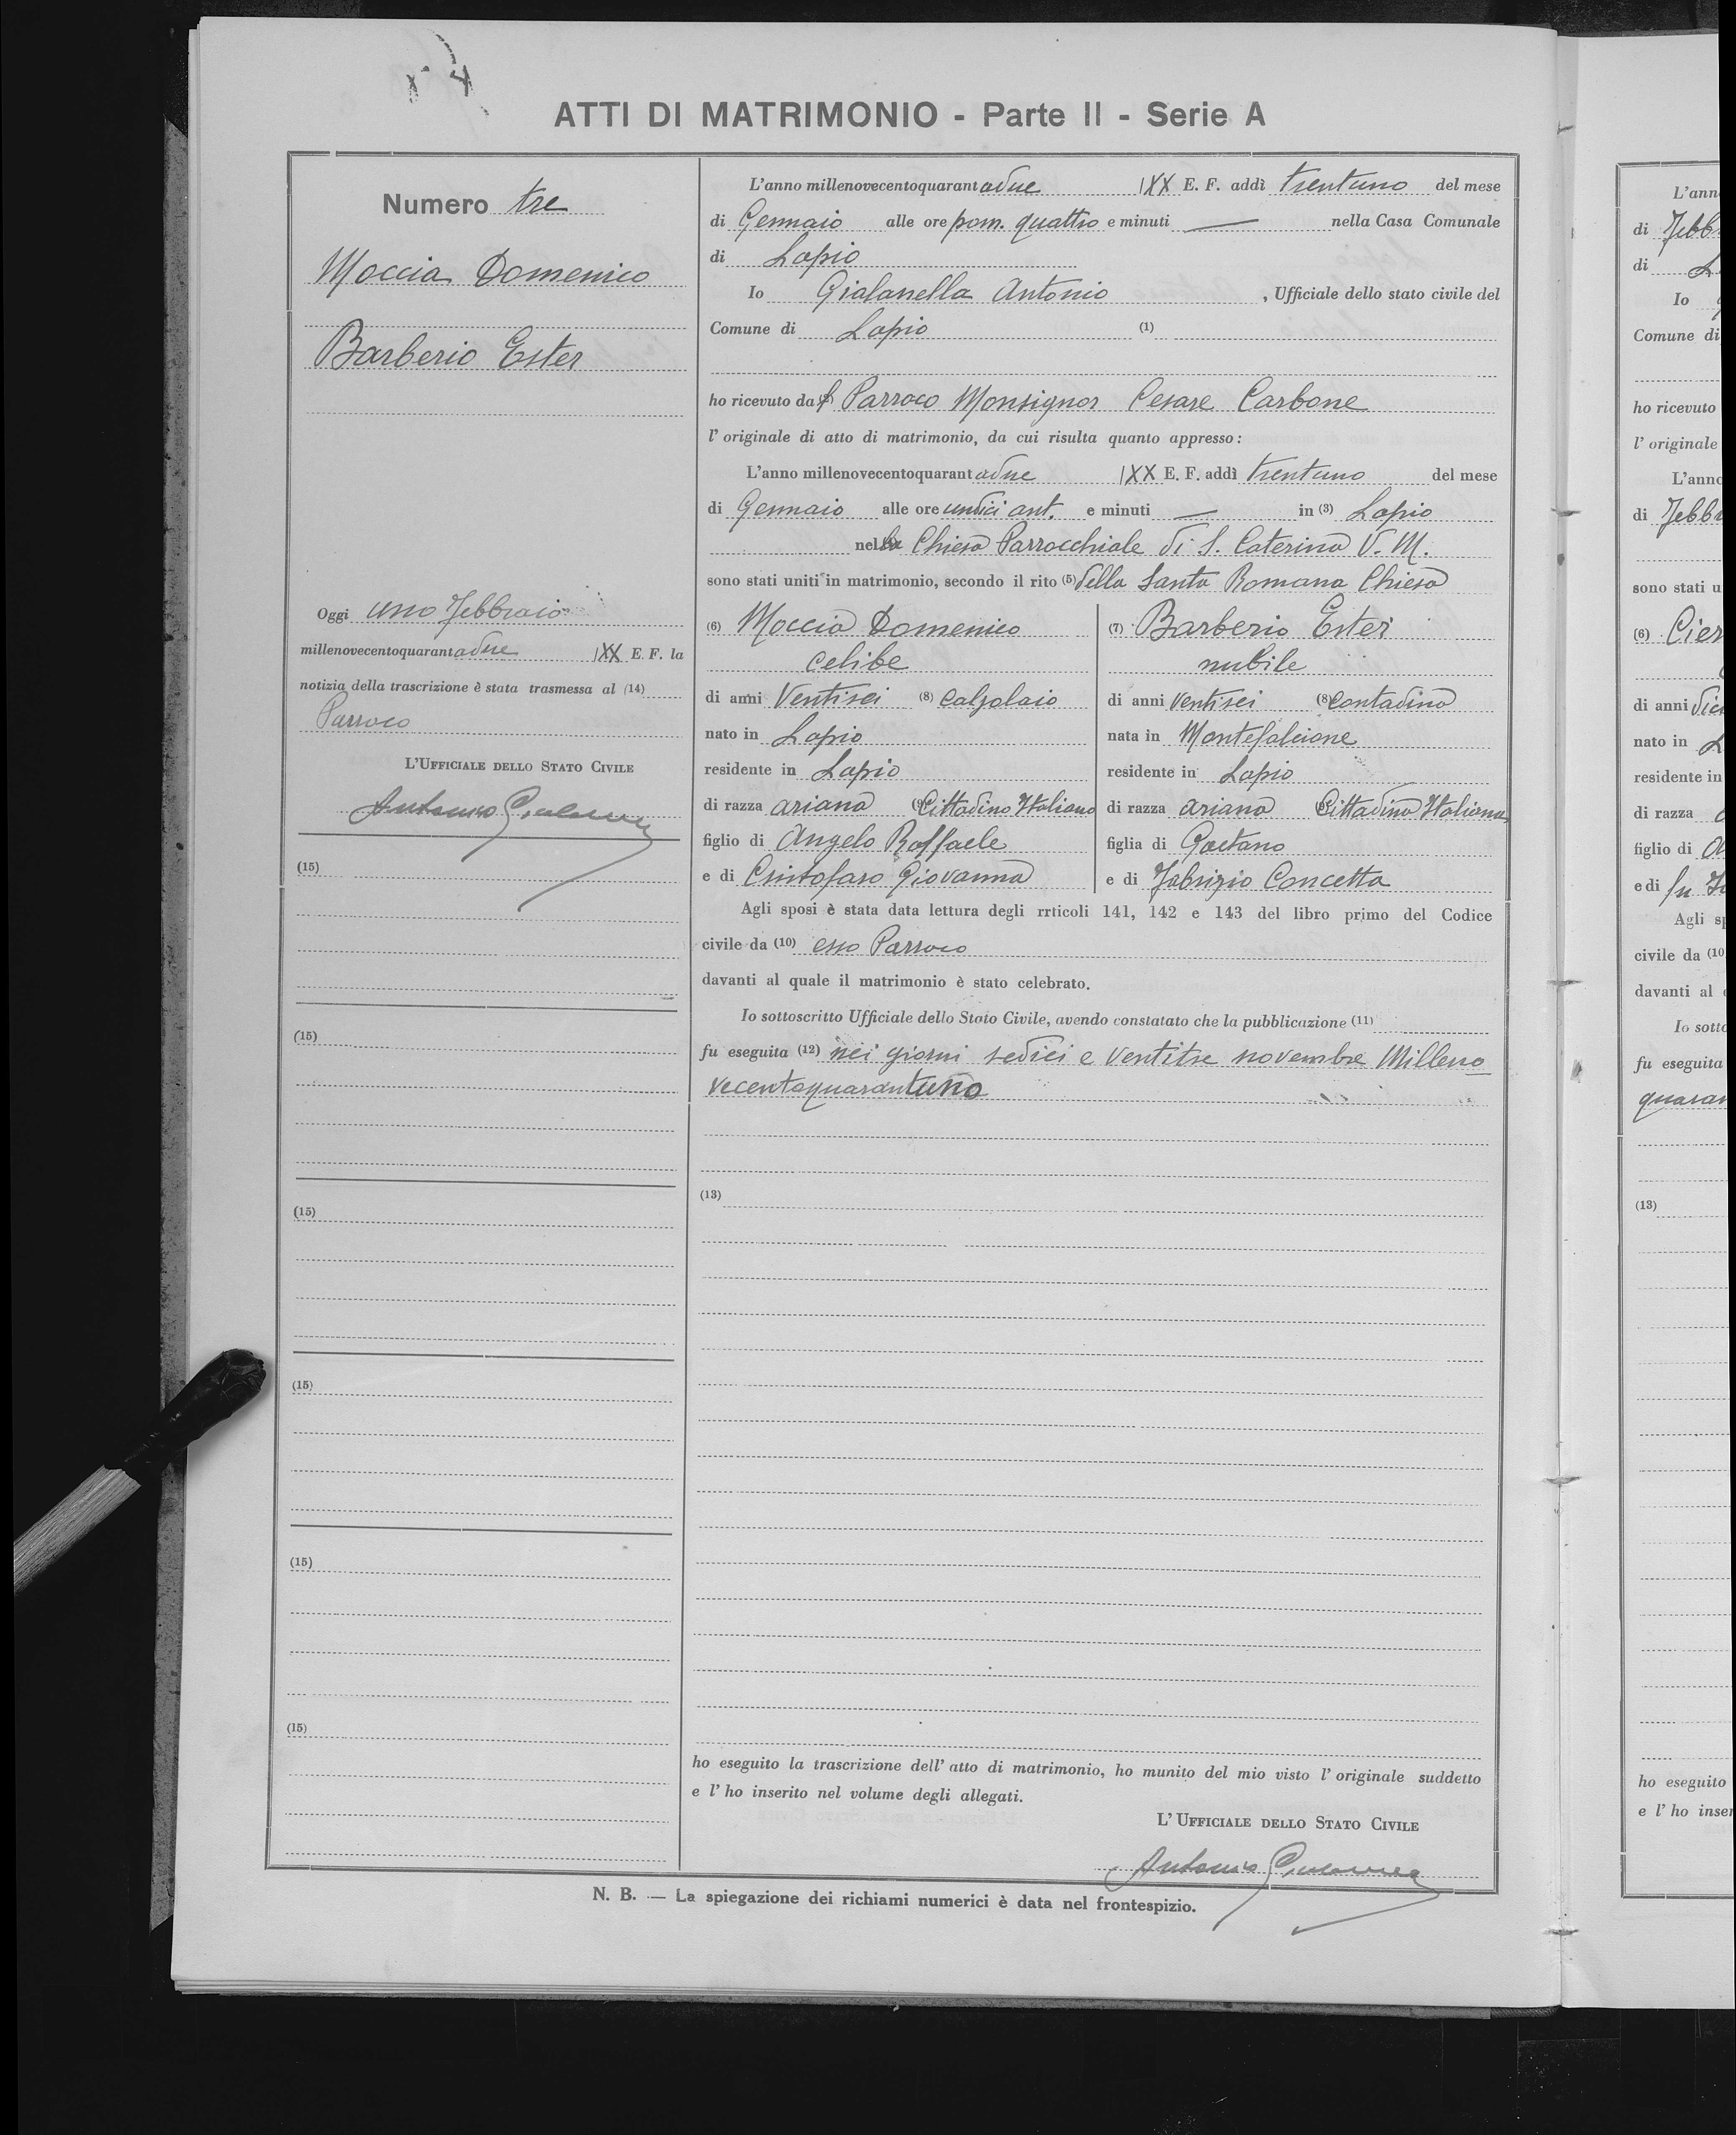 ATTI DI MATRIMONIO - Parte II - Serie A
Numero tre
Moccia Domenico
Barberio Ester
Oggi uno Febbraio
millenovecentoquarantadue XX E. F. la
notizia della trascrizione è stata trasmessa al (14)
Parroco
L'UFFICIALE DELLO STATO CIVILE
(15)
(15)
(15)
(15)
(15)
(15)
L'anno millenovecentoquarantadue XX E. F. addì trentuno del mese
di Gennaio alle ore pom. quattro e minuti — nella Casa Comunale
di Lapio
Io Gialanella Antonio , Ufficiale dello stato civile del
Comune di Lapio (1)
ho ricevuto dal Parroco Monsignor Cesare Carbone
l'originale di atto di matrimonio, da cui risulta quanto appresso:
L'anno millenovecentoquarantadue XX E. F. addì trentuno del mese
di Gennaio alle ore undici ant. e minuti — in (3) Lapio
nella Chiesa Parrocchiale di S. Caterina V. M.
sono stati uniti in matrimonio, secondo il rito (5) della Santa Romana Chiesa
(6) Moccia Domenico
celibe
di anni Ventisei (8) calzolaio
nato in Lapio
residente in Lapio
di razza ariana (9) Cittadino Italiano
figlio di Angelo Raffaele
e di Cristofaro Giovanna
(7) Barberio Ester
nubile
di anni ventisei (8) contadina
nata in Montefalcione
residente in Lapio
di razza ariana Cittadina Italiana
figlia di Gaetano
e di Fabrizio Concetta
Agli sposi è stata data lettura degli rrticoli 141, 142 e 143 del libro primo del Codice
civile da (10) esso Parroco
davanti al quale il matrimonio è stato celebrato.
Io sottoscritto Ufficiale dello Stato Civile, avendo constatato che la pubblicazione (11)
fu eseguita (12) nei giorni sedici e ventitre novembre Milleno
vecentoquarantuno
(13)
ho eseguito la trascrizione dell'atto di matrimonio, ho munito del mio visto l'originale suddetto
e l'ho inserito nel volume degli allegati.
L'UFFICIALE DELLO STATO CIVILE
N. B. — La spiegazione dei richiami numerici è data nel frontespizio.
L'ann
di Febb
di
Io
Comune di
ho ricevuto
l'originale
L'anno
di Febbr
sono stati u
(6) Cier
di anni dici
nato in L
residente in
di razza
figlio di
e di fu
Agli s
civile da (10
davanti al
Io sotto
fu eseguita
quaran
(13)
ho eseguito
e l'ho inser